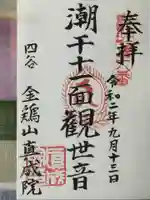 奉拝
令和二年九月十三日
潮干十一面観世音
四谷
金鶏山真成院